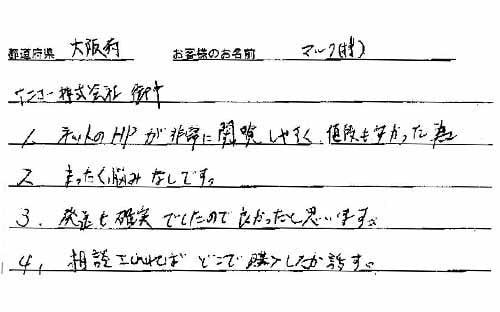 都道府県 大阪府 お客様のお名前 マルク(株)
サンコー株式会社 御中
1、ネットのHPが非常に閲覧しやすく、値段も安かった為
2 まったく悩みなしです。
3. 発送も確実でしたので良かったと思います。
4、相談されればどこで購入したか話す。